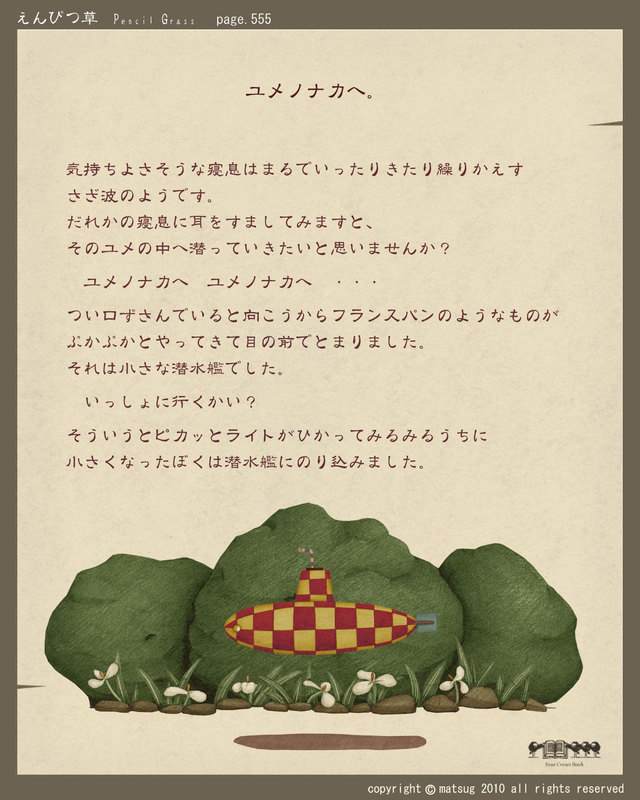 えんぴつ草 Pencil Grass page.555
ユメノナカへ。
気持ちよさそうな寝息はまるでいったりきたり繰りかえす
さざ波のようです。
だれかの寝息に耳をすましてみますと、
そのユメの中へ潜っていきたいと思いませんか？
ユメノナカへ ユメノナカへ ・・・
つい口ずさんでいると向こうからフランスパンのようなものが
ぷかぷかとやってきて目の前でとまりました。
それは小さな潜水艦でした。
いっしょに行くかい？
そういうとピカッとライトがひかってみるみるうちに
小さくなったぼくは潜水艦にのり込みました。
Four Crows Book
copyright © matsug 2010 all rights reserved